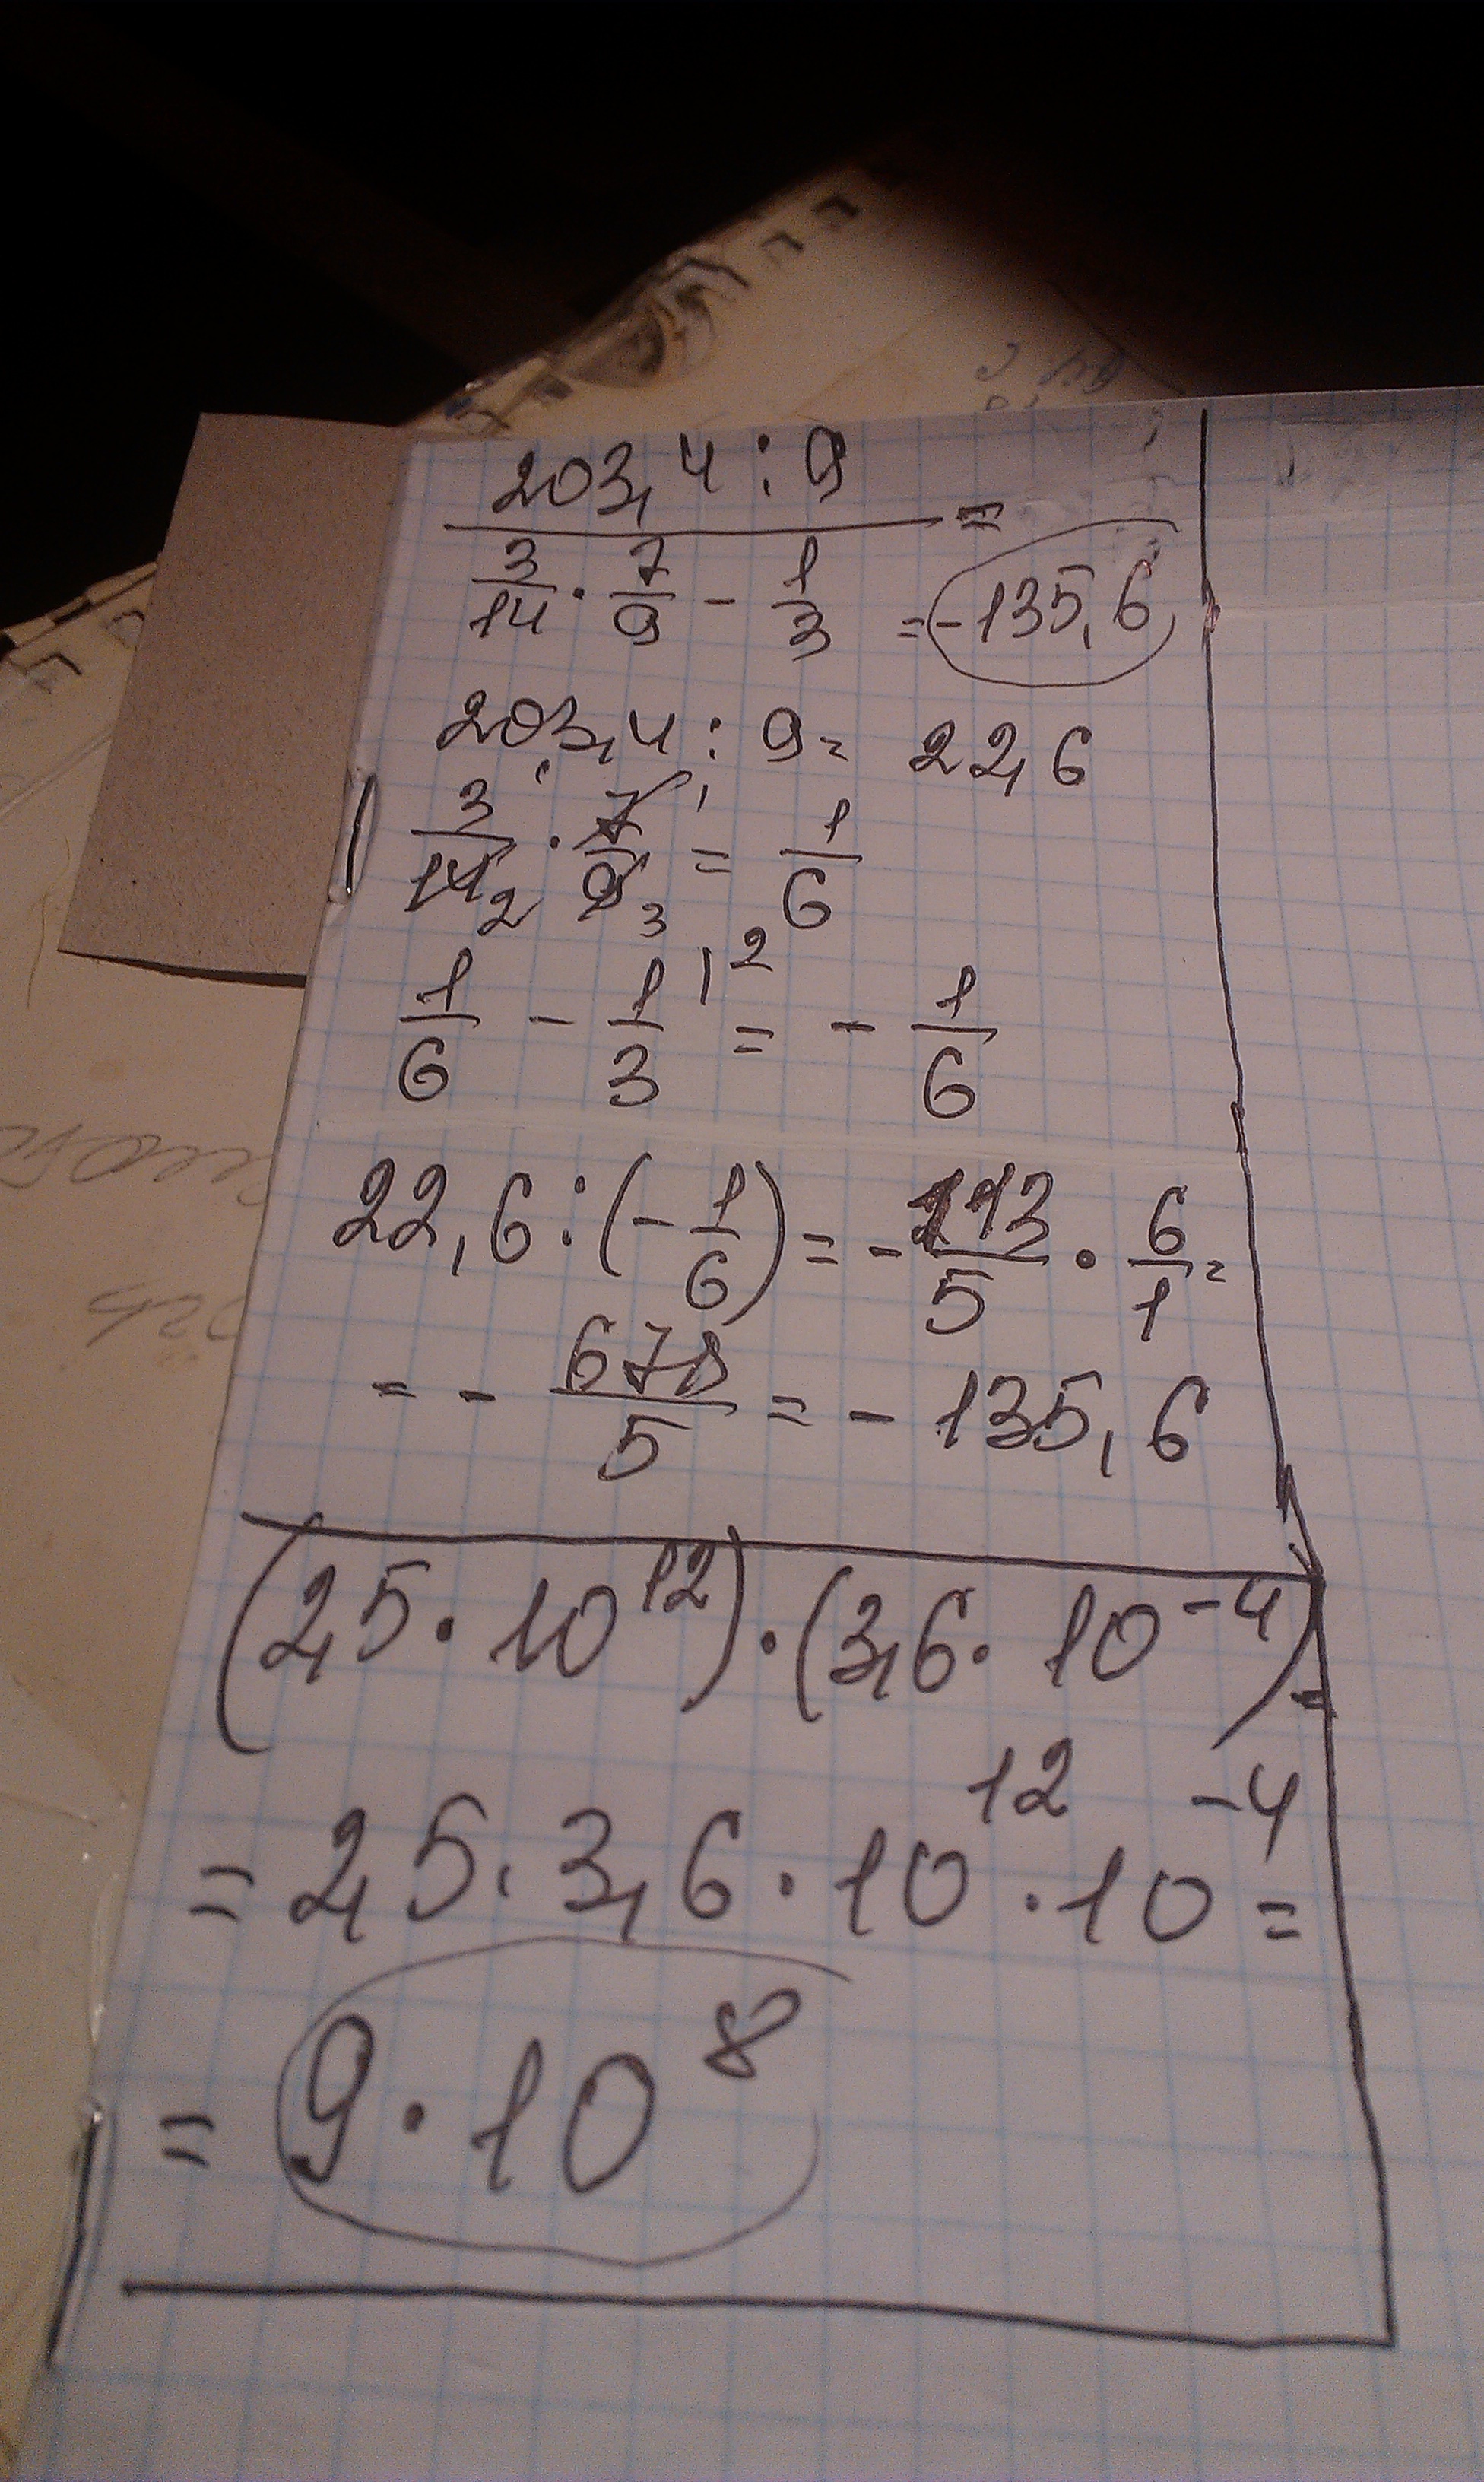 203,4 : 9 =
3/14 · 7/9 - 1/3 = -135,6
203,4 : 9 = 22,6
3/14 · 7/9 = 1/6
1/6 - 1/3 = - 1/6
22,6 : (- 1/6) = - 113/5 · 6/1 =
= - 678/5 = - 135,6
(2,5 · 10^12) · (3,6 · 10^-4) =
= 2,5 · 3,6 · 10^12 · 10^-4 =
= 9 · 10^8